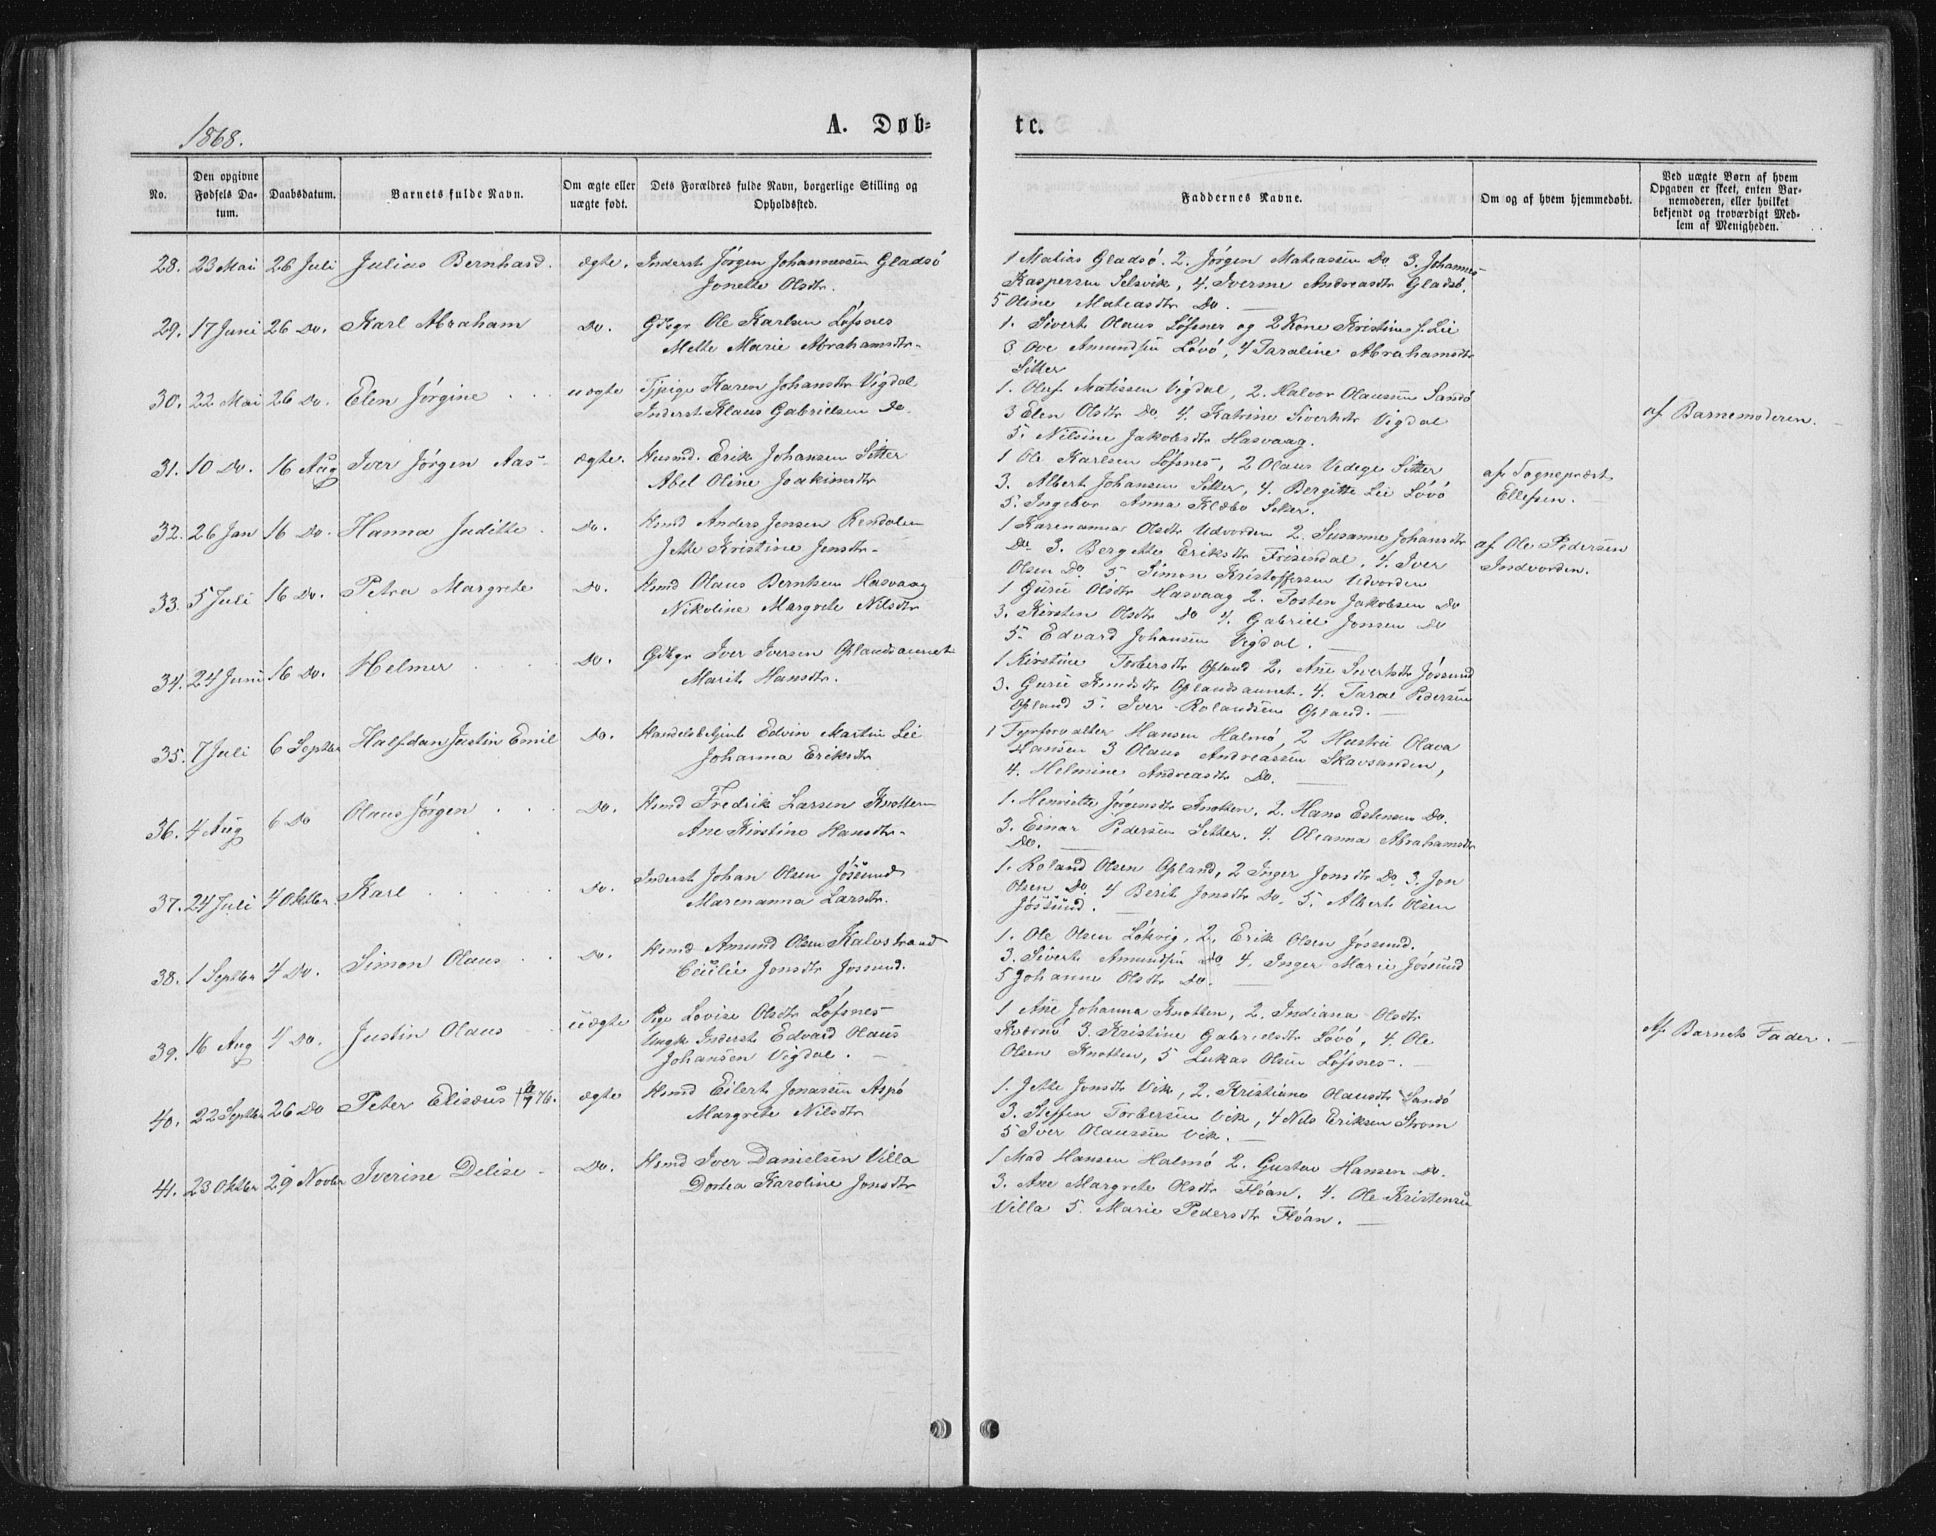 1868.
A. Døb-
te.
No.
Den opgivne Fødsels Da-tum.
Daabsdatum.
Barnets fulde Navn.
Om ægte eller uægte født.
Dets Forældres fulde Navn, borgerlige Stilling og Opholdssted.
Faddernes Navne.
Om og af hvem hjemmedøbt.
Ved uægte Børn af hvem Opgaven er skeet, enten Bar-nemoderen, eller hvilket bekjendt og troværdigt Med-lem af Menigheden.
28. 23 Mai 26 Juli Julius Bernhard. ægte. Inderst Jørgen Johannessen Gladsø
Jonette Olsdtr.
1 Matias Gladsø. 2. Jørgen Mateassen Do 3. Johannes
Kaspersen Selsvik, 4. Iverine Andreasdtr Gladsø.
5 Oline Mateasdtr Do.
29. 17 Juni 26 Do. Karl Abraham Do. Gdbgr Ole Karlsen Løfsnes
Mette Marie Abrahamsdtr.
1. Sivert Olaus Løfsnes og 2 Kone Kristine f. Lie
3 Ove Amundsen Løvø, 4 Taraline Abrahamsdtr
Sitter
30. 22 Mai 26 Do. Elen Jørgine uægte Tjpige Karen Johansdtr Vigdal
Inderst Klaus Gabrielsen Do.
1. Oluf Matissen Vigdal, 2. Halvor Olaussen Sandø
3 Elen Olsdtr Do. 4. Katrine Sivertsdtr Vigdal
5. Nilsine Jakobsdtr Hasvaag.
af Barnemoderen.
31. 10 Do. 16 Aug Iver Jørgen Aas- ægte. Husmd. Erik Johansen Sitter
Abel Oline Joakimsdtr
1 Ole Karlsen Løfsnes, 2 Olaus Vedege Sitter
3. Albert Johansen Sitter, 4. Bergitte Lie Løvø
5. Ingebor Anna Klæbo Setter.
af Sognepræst
Ellefsen.
32. 26 Jan 16 Do. Hanna Juditte Do. Hsmd Anders Jensen Rendalen
Jette Kristine Jensdtr.
1 Karenanna Olsdtr Udvorden 2. Susanne Johansdtr
Do 3. Bergette Eriksdtr Frisendal, 4. Iver
Olsen Do 5 Simon Kristoffersen Udvorden
af Ole Pedersen
Indvorden.
33. 5 Juli 16 Do. Petra Margrete Do. Hsmd Olaus Berntsen Hasvaag
Nikoline Margrete Nilsdtr
1 Gurie Olsdtr Hasvaag 2. Tosten Jakobsen Do
3. Kirsten Olsdtr Do 4. Gabriel Jonsen Do
5. Edvard Johansen Vigdal.
34. 24 Juni 16 Do. Helmer Do. Gdbgr Iver Iversen Oplandsaunet
Marit Hansdtr.
1. Kirstine Torbersdtr Opland 2. Ane Sivertsdtr Jøssund
3. Gurie Knudsdtr Oplandsaunet. 4. Taral Pedersen
Opland 5. Iver Rolandsen Opland.
35. 7 Juli 6 Septbr Halfdan Justin Emil Do. Handelsbetjent Edvin Martin Lie
Johanna Eriksdtr
1 Fyrforvalter Hansen Halmø, 2 Hustru Olava
Hansen 3 Olaus Andreassen Skavsanden,
4. Helmine Andreasdtr Do.
36. 4 Aug 6 Do Olaus Jørgen Do. Hsmd Fredrik Larsen Knotten
Ane Kirstine Hansdtr.
1. Henriette Jørgensdtr Knotten, 2. Hans Estensen Do.
3. Einar Pedersen Setter. 4. Oleanna Abrahamsdtr
Do.
37. 24 Juli 4 Oktbr. Karl Do. Inderst Johan Olsen Jøssund
Marenanna Larsdtr.
1. Roland Olsen Opland, 2 Inger Jonsdtr Do. 3. Jon
Olsen Do. 4 Berit Jonsdtr Do. 5. Albert Olsen
Jøssund.
38. 1 Septbr 4 Do. Simon Olaus Do. Hsmd Amund Olsen Kalvstrand
Cecilie Jonsdtr Jøssund.
1. Ole Olsen Løkvig, 2. Erik Olsen Jøssund.
3. Sivert Amundsen Do 4. Inger Marie Jøssund
5 Johanna Olsdtr Do.
39. 16 Aug 4 Do. Justin Olaus uægte Pige Lovise Olsdtr Løfsnes
Ungk Inderst Edvard Olaus
Johansen Vigdal.
1 Ane Johanna Knotten, 2. Indiana Olsdtr
Kværnø 3. Kristine Gabrielsdtr Løvø, 4. Ole
Olsen Knotten, 5 Lukas Olsen Løfsnes.
Af Barnets Fader.
40. 22 Septbr 26 Do Peter Elisæus ægte Hsmd Eilert Jonassen Aspø
Margrete Nilsdtr
1. Jette Jonsdtr Vik, 2. Kristiane Olausdtr Sandø
3. Steffen Torbersen Vik, 4 Nils Eriksen Strøm
5 Iver Olaussen Vik.
41. 23 Oktbr 29 Novbr Iverine Delise Do. Hsmd Iver Danielsen Villa
Dortea Karoline Jonsdtr
1 Mad Hansen Halmø 2. Gustav Hansen Do.
3. Ane Margrete Olsdtr Fløan. 4. Ole Kristensen
Villa 5. Marie Pedersdtr Fløan.